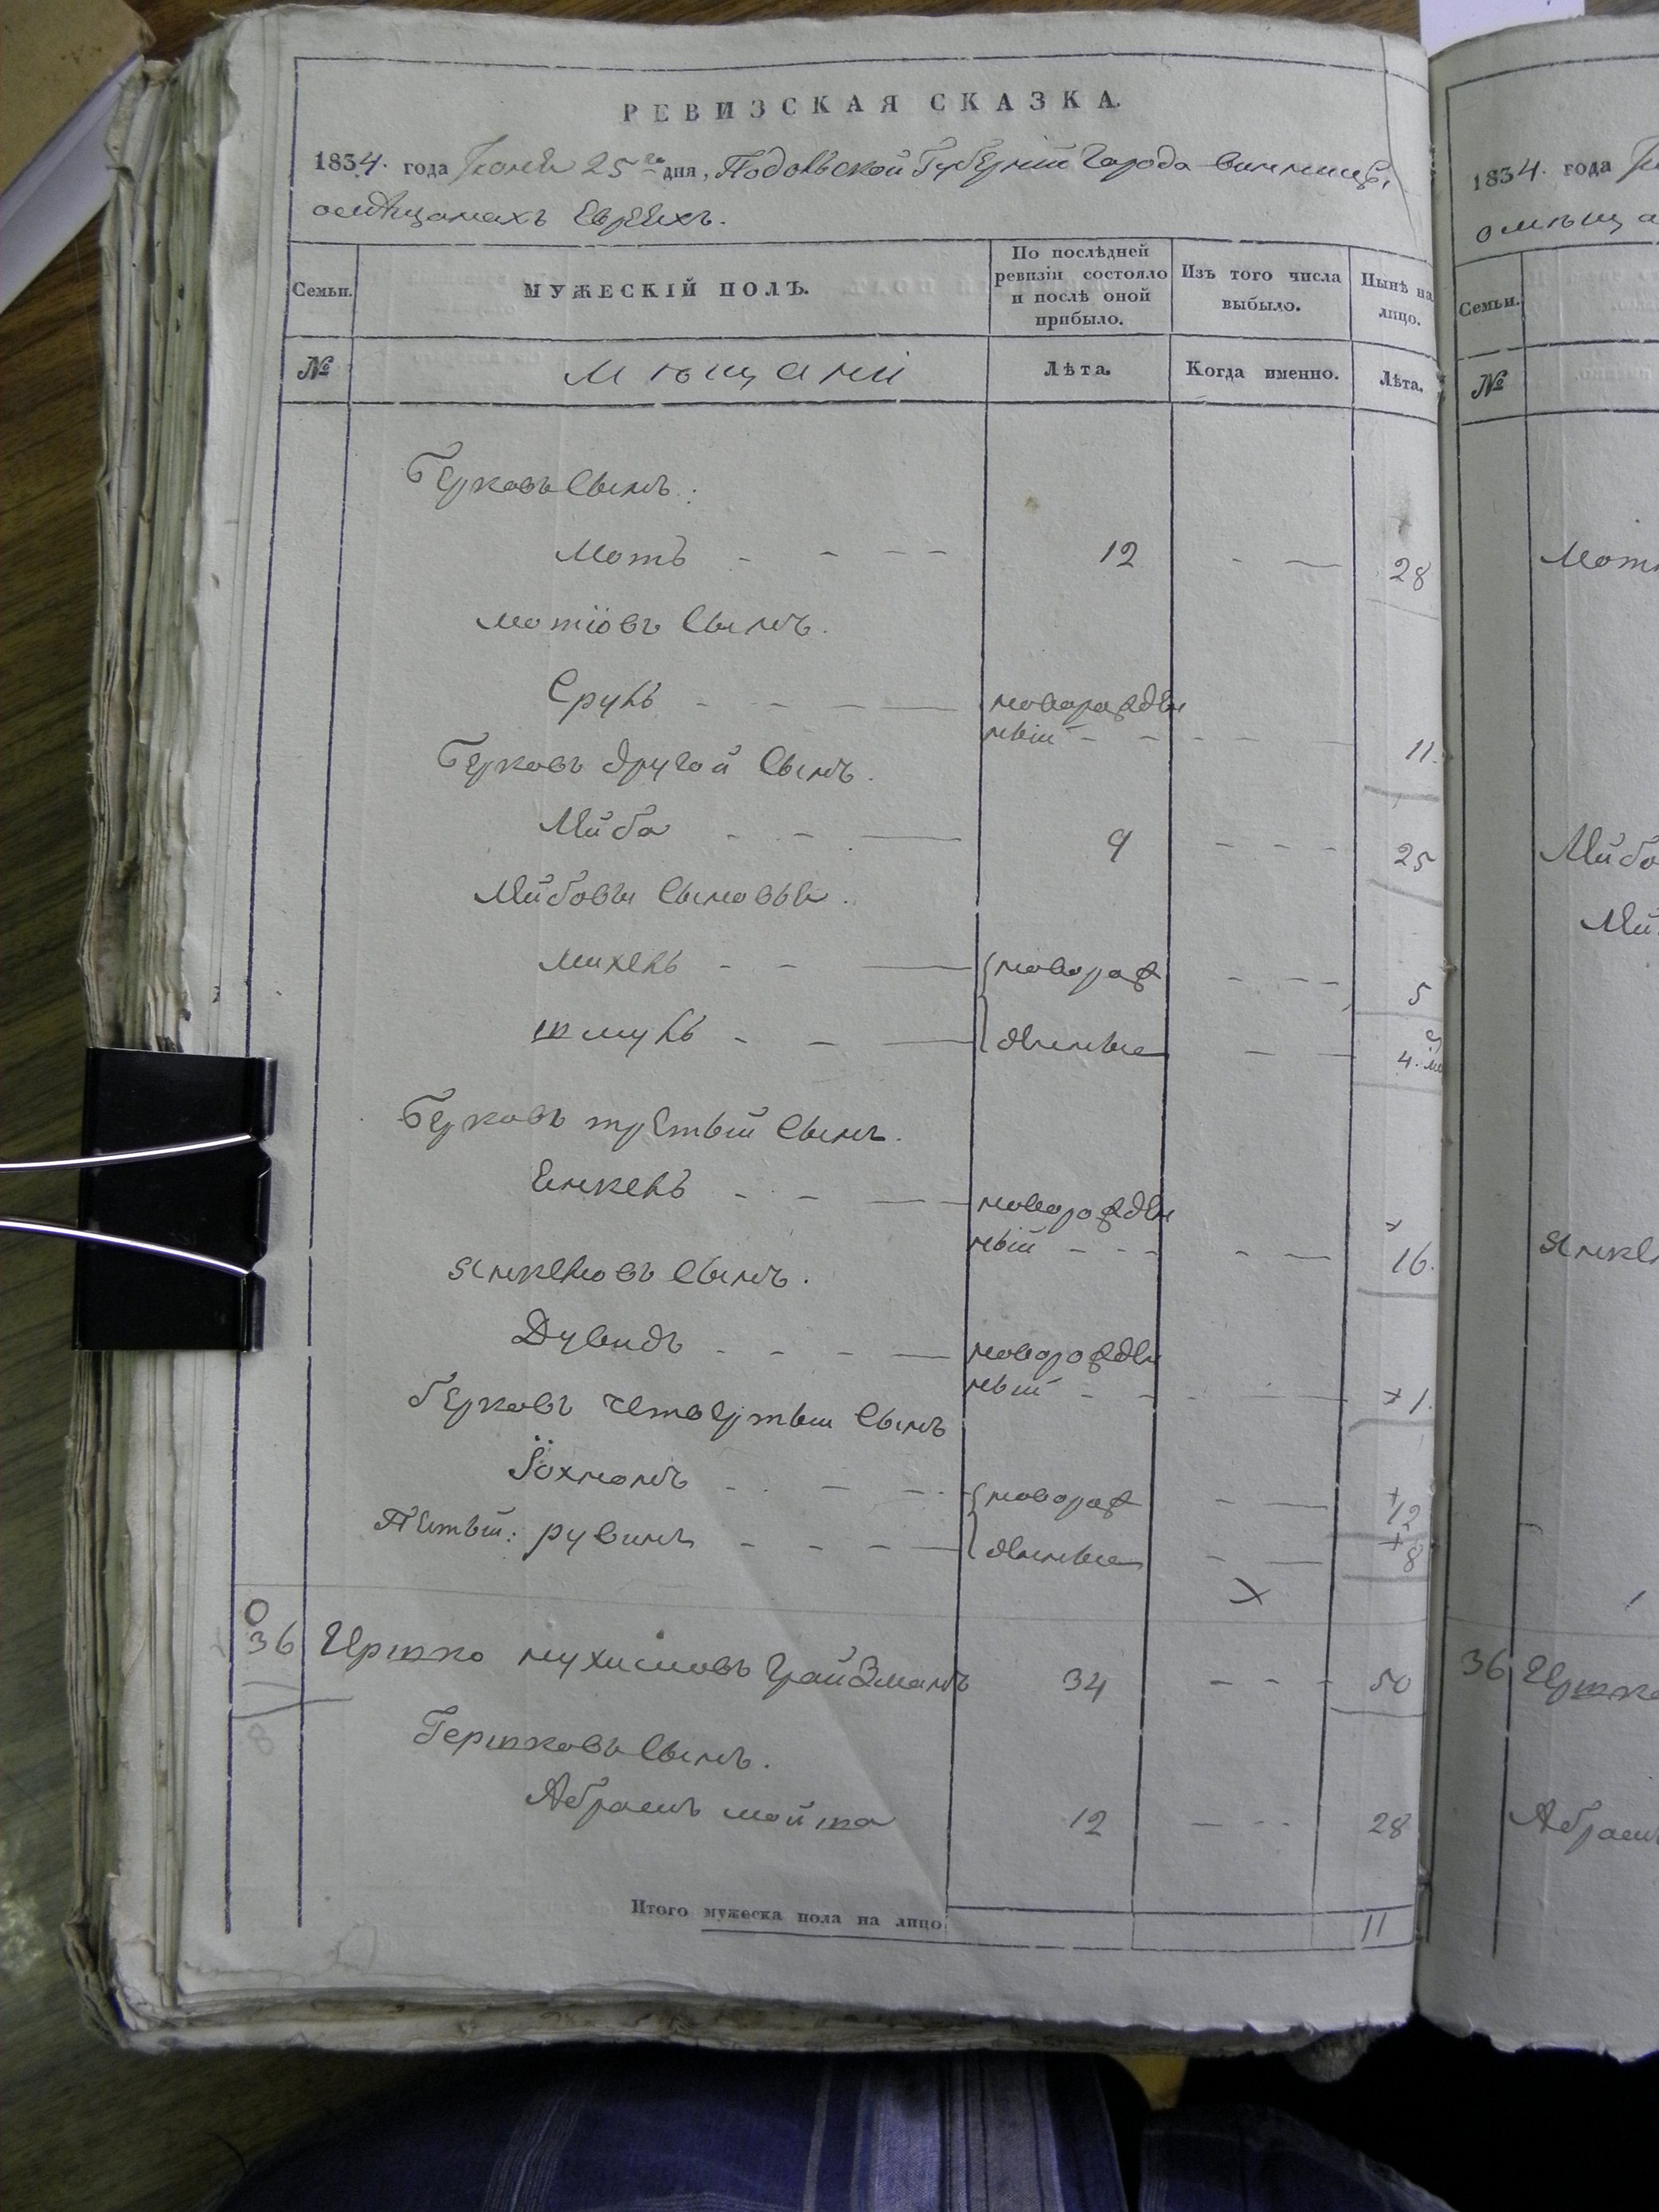 РЕВИЗСКАЯ СКАЗКА.
1834. года Іюня 25го дня, Подольской Губерніи Города Винницы,
омѣщанахъ Евреяхъ.
Семьи.
МУЖЕСКІЙ ПОЛЪ.
По послѣдней ревизіи состояло и послѣ оной прибыло.
Изъ того числа выбыло.
Нынѣ на лицо.
№ мѣщани Лѣта. Когда именно. Лѣта.
Берковъ Сынъ.
Мотъ - - - - 12 - — 28
мотіовъ Сынъ.
Сруль - - - — новорожден
ный - - - - — 11.
Берковъ другой Сынъ.
Лейба - - — 9 - - - 25
Лейбовы Сыновья.
михель - - — новорож - - - 5
шмуль - - — денные — — 4. ме
Берковъ третый Сынъ.
Янкель - - — новорожден
ный - - - - — 16.
Янкеліовъ Сынъ.
Дувидъ - - - — новорожден
ный - - - — 1.
Берковъ четвертый Сынъ
Іохнонъ - - - - новорож - — 12
Пятый: рувинъ - - - — денные - — 8
36 Гершко нухимовъ Грайзманъ 34 - - - 50
Гершковъ Сынъ.
Абрамъ мойша 12 — - - 28
Итого мужеска пола на лицо 11
1834. года
омѣща
Семьи.
№
Лейбо
36 Гершко
Абрам